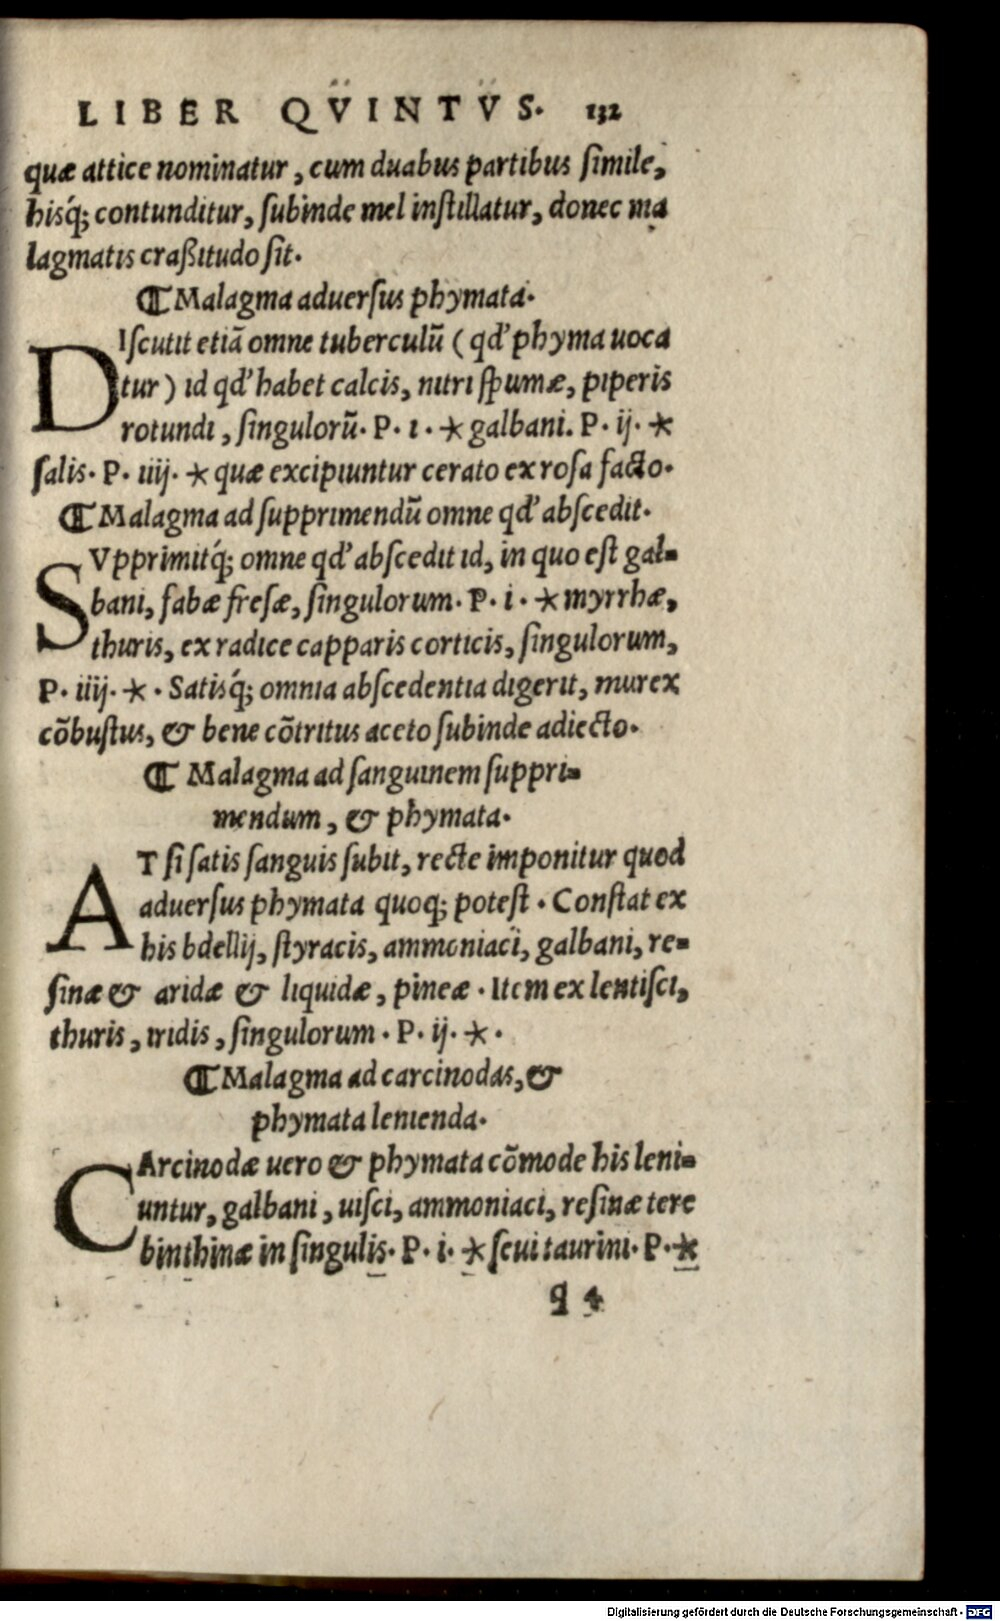 LIBER QVINTVS. 132
quæ attice nominatur, cum duabus partibus ſimile,
hisq́; contunditur, ſubinde mel inſtillatur, donec ma
lagmatis craßitudo ſit.
¶ Malagma aduerſus phymata.
DIſcutit etiā omne tuberculū (qd' phyma uoca
tur) id qd' habet calcis, nitri ſpumæ, piperis
rotundi, ſingulorū. P. i. * galbani. P. ij. *
ſalis. P. iiij. * quæ excipiuntur cerato ex roſa facto.
¶ Malagma ad ſupprimendū omne qd' abſcedit.
SVpprimitq́; omne qd' abſcedit id, in quo eſt gal-
bani, fabæ freſæ, ſingulorum. P. i. * myrrhæ,
thuris, ex radice capparis corticis, ſingulorum,
P. iiij. *. Satisq́; omnia abſcedentia digerit, murex
cōbuſtus, & bene cōtritus aceto ſubinde adiecto.
¶ Malagma ad ſanguinem ſuppri-
mendum, & phymata.
AT ſi ſatis ſanguis ſubit, recte imponitur quod
aduerſus phymata quoq; poteſt. Conſtat ex
his bdellij, ſtyracis, ammoniaci, galbani, re-
ſinæ & aridæ & liquidæ, pineæ. Item ex lentiſci,
thuris, iridis, ſingulorum. P. ij. *.
¶ Malagma ad carcinodas, &
phymata lenienda.
CArcinodæ uero & phymata cōmode his leni-
untur, galbani, uiſci, ammoniaci, reſinæ tere
binthinæ in ſingulis. P. i. * ſeui taurini. P. *
q 4
Digitalisierung gefördert durch die Deutsche Forschungsgemeinschaft - DFG